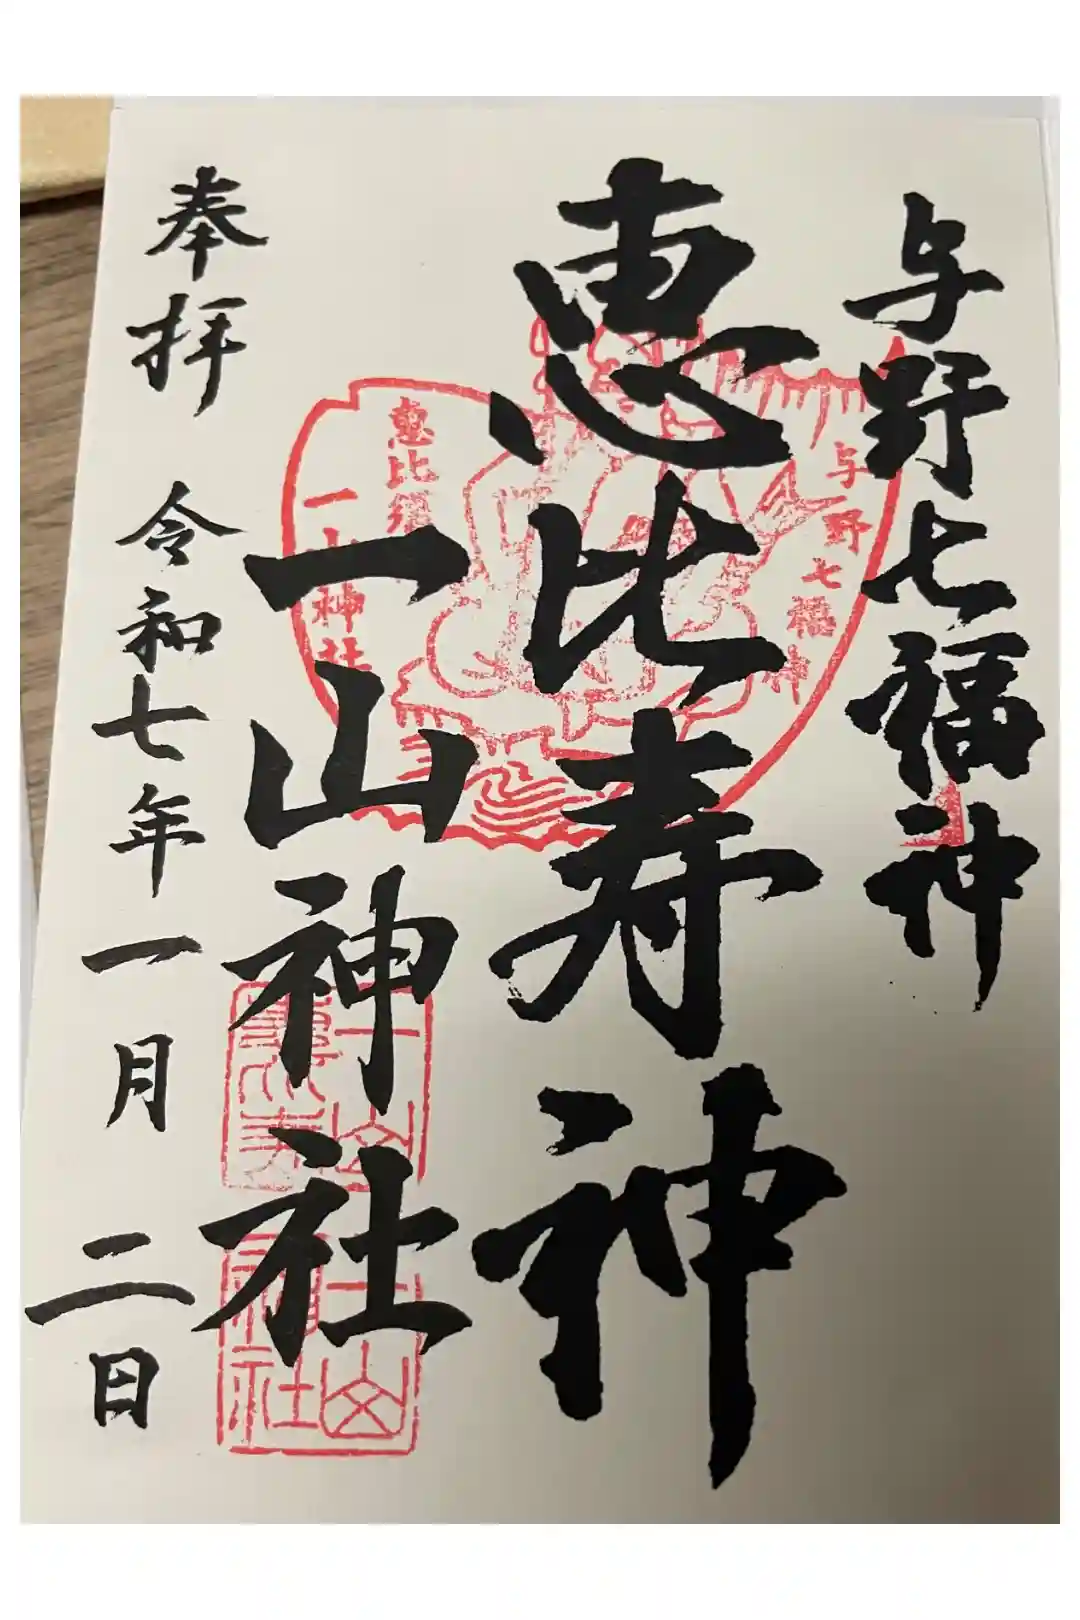 与野七福神
恵比寿神
一山神社
奉拝 令和七年一月二日
与野七福神
恵比須
一山神社